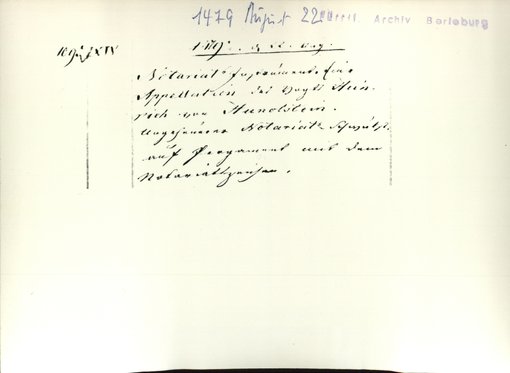 1479 August 22 Fürstl. Archiv Berleburg
1479. d. 22. Aug.
Notariats Instrument über
Appellation des Vogts Hein-
rich von Hunolstein.
Notariats
auf Pergament mit dem
Notariatszeichen.